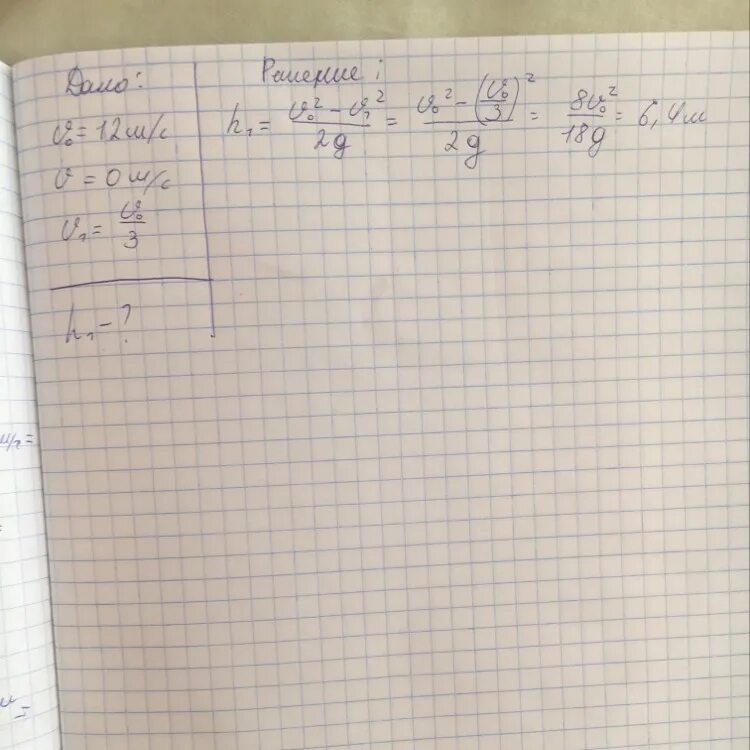 Дано:
υ₀ = 12 м/с
υ = 0 м/с
υ₁ = υ₀/3
h₁ - ?
Решение:
h₁ = (υ₀² - υ₁²)/2g = (υ₀² - (υ₀/3)²)/2g = 8υ₀²/18g = 6,4 м